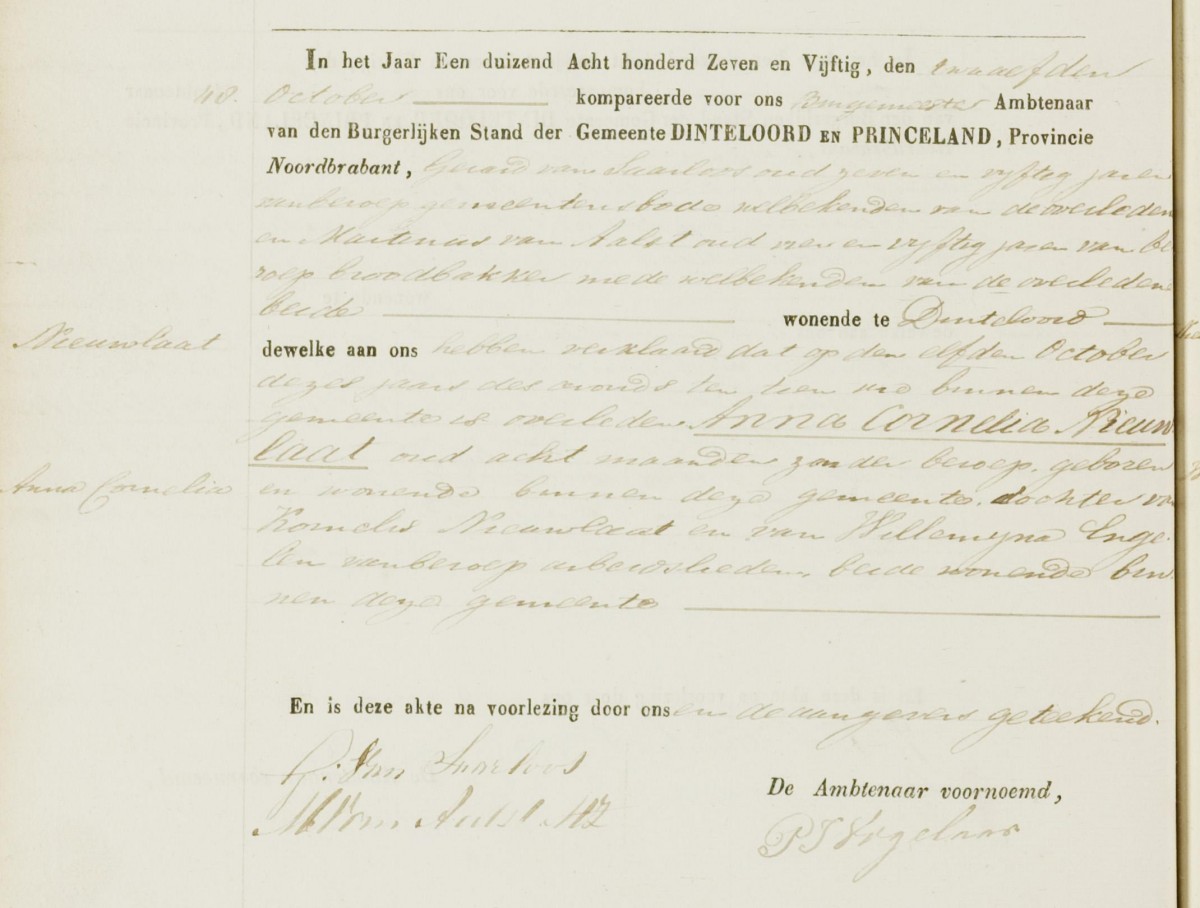 In het Jaar Een duizend Acht honderd Zeven en Vijftig, den twaalfden
48. October kompareerde voor ons Burgemeester Ambtenaar
van den Burgerlijken Stand der Gemeente DINTELOORD EN PRINCELAND, Provincie
Noordbrabant, Gerard van Saarloos oud zeven en vyftig jaren
van beroep gemeentensbode welbekenden van de overleden
en Martinus van Aalst oud vier en vyftig jaren van be
roep broodbakker mede welbekenden van de overledene
beide wonende te Dinteloord
Nieuwlaat
dewelke aan ons hebben verklaard dat op den elfden October
dezes jaars des avonds ten tien ure binnen deze
gemeente is overleden Anna Cornelia Nieuw
laat oud acht maanden zonder beroep, geboren
Anna Cornelia
en wonende binnen deze gemeente. dochter van
Kornelis Nieuwlaat en van Willemyna Enge
len van beroep arbeidslieden, beide wonende bin
nen deze gemeente
En is deze akte na voorlezing door ons en de aangevers geteekend.
G. Van Saarloos
De Ambtenaar voornoemd,
M Van Aalst MZ